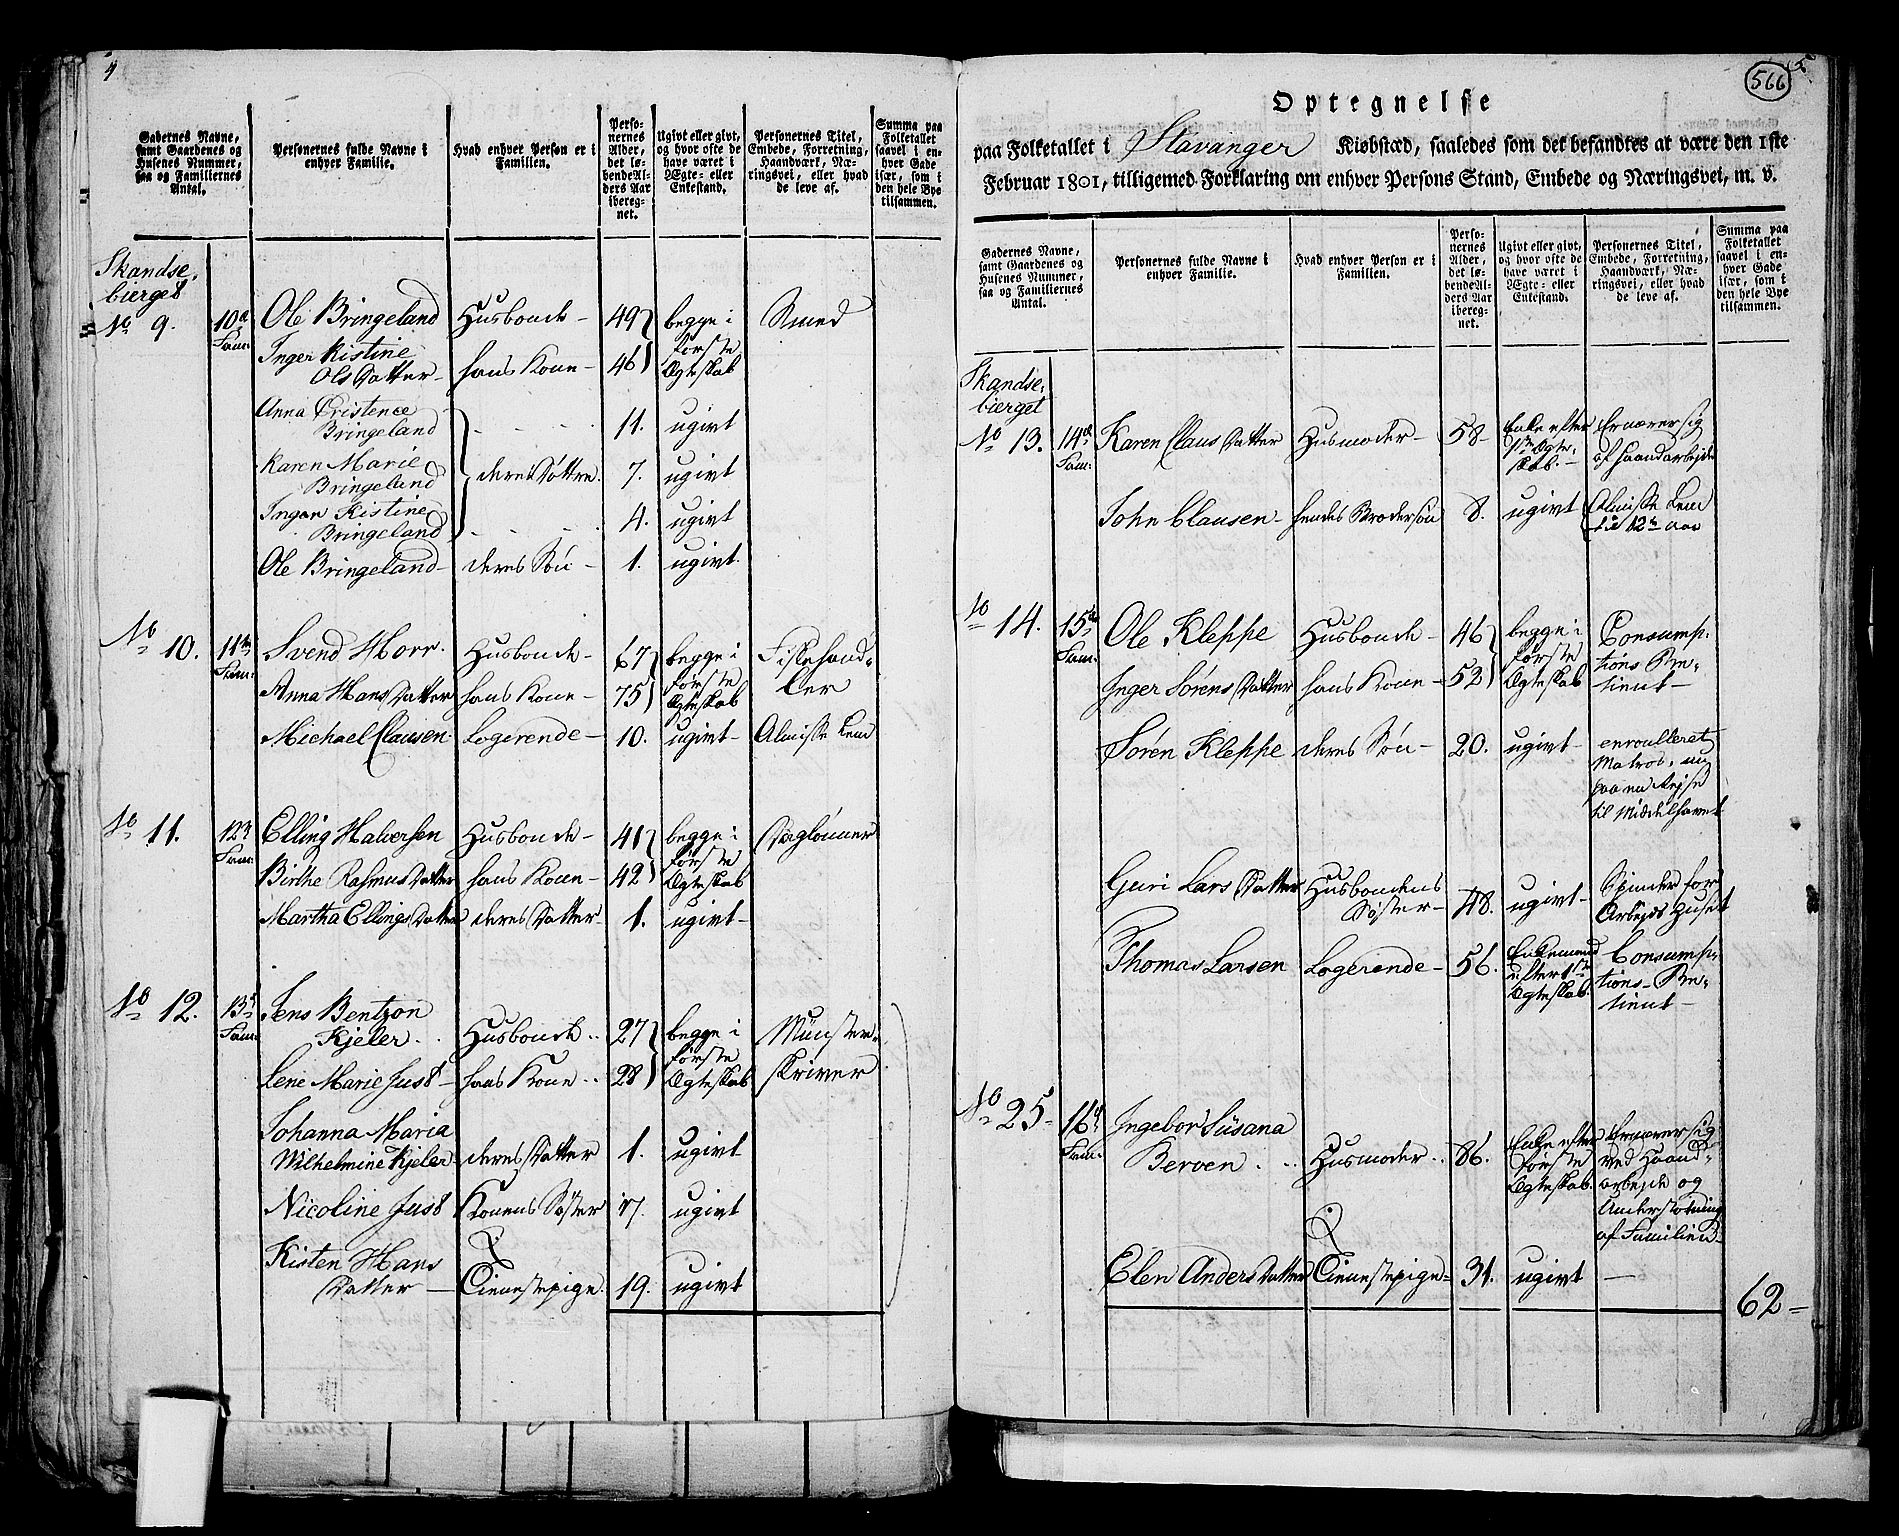 4
Gadernes Navne, samt Gaardenes og Husenes Nummer, saa og Familiernes Antal.
Personernes fulde Navne i enhver Familie.
Hvad enhver Person er i Familien.
Personernes Alder, det løbende Alders Aar iberegnet.
Ugivt eller givt, og hvor ofte de have været i Ægte- eller Enkestand.
Personernes Titel, Embede, Forretning, Haandværk, Næringsvei, eller hvad de leve af.
Summa paa Folketallet saavel i enhver Gade især, som i den hele Bye tilsammen.
Skandse-
bierget
No 9. 10de Fam: Ole Bringeland Husbonde 49 begge i første Ægteskab Smed
Inger Kistine Ols Datter hans Kone 46
Anna Cristence Bringeland 11. ugivt
Karen Marie Bringeland deres Døttre. 7. ugivt
Inger Kistine Bringeland 4. ugivt
Ole Bringeland deres Søn 1. ugivt.
No 10. 11te Fam: Svend Horr. Husbonde 67 begge i første Ægteskab Fiskehandler
Anna Hans Datter hans Kone 75
Michael Clausen Logerende 10. ugivt Almisse Lem
No 11. 12te Fam: Elling Halversen Husbonde 41 begge i første Ægteskab Daglønner
Birthe Rasmus Datter hans Kone 42
Martha Ellings Datter deres Datter 1. ugivt
No 12. 13de Fam: Jens Bentzon Kjeler Husbonde 27 begge i første Ægteskab Münsterskriver
Lene Marie Just hans Kone 28
Johanna Maria Wilhelmine Kjeler deres Datter 1. ugivt
Nicoline Just Konens Søster 17. ugivt
Kisten Hans Datter Tienestepige. 19. ugivt
566
5
Optegnelse
paa Folketallet i Stavanger Kiøbstæd, saaledes som det befandtes at være den 1ste
Februar 1801, tilligemed Forklaring om enhver Persons Stand, Embede og Næringsvei, m. v.
Gadernes Navne, samt Gaardenes og Husenes Nummer, saa og Familiernes Antal.
Personernes fulde Navne i enhver Familie.
Hvad enhver Person er i Familien.
Personernes Alder, det løbende Alders Aar iberegnet.
Ugivt eller givt, og hvor ofte de have været i Ægte- eller Enkestand.
Personernes Titel, Embede, Forretning, Haandværk, Næringsvei, eller hvad de leve af.
Summa paa Folketallet saavel i enhver Gade især, som i den hele Bye tilsammen.
Skandse-
bierget
No 13. 14de Fam: Karen Claus Datter Husmoder 58 Enke efter 1te Ægteskab. Ernærer sig af Haandarbejde
John Clausen hendes Brodersøn 8. ugivt Almisse Lem
No 14. 15de Fam: Ole Kleppe Husbonde 46 begge i første Ægteskab Consumptions Betient
Inger Sørens Datter hans Kone 52
Søren Kleppe deres Søn 20. ugivt enroulleret Matros, nu paa en Rejse til Middelhavet
Guri Lars Datter Husbondens Søster 48. ugivt Spinder for Arbejds Huset
Thomas Larsen Logerende 56. Enkemand efter 1te Ægteskab. Consumptions Betient
No 25 16de Fam: Ingebor Susana Beroen Husmoder 86. Enke efter første Ægteskab. Ernærer sig ved Haandarbejde og Understøtning af Familien
Elen Anders Datter Tienestepige 31. ugivt
62